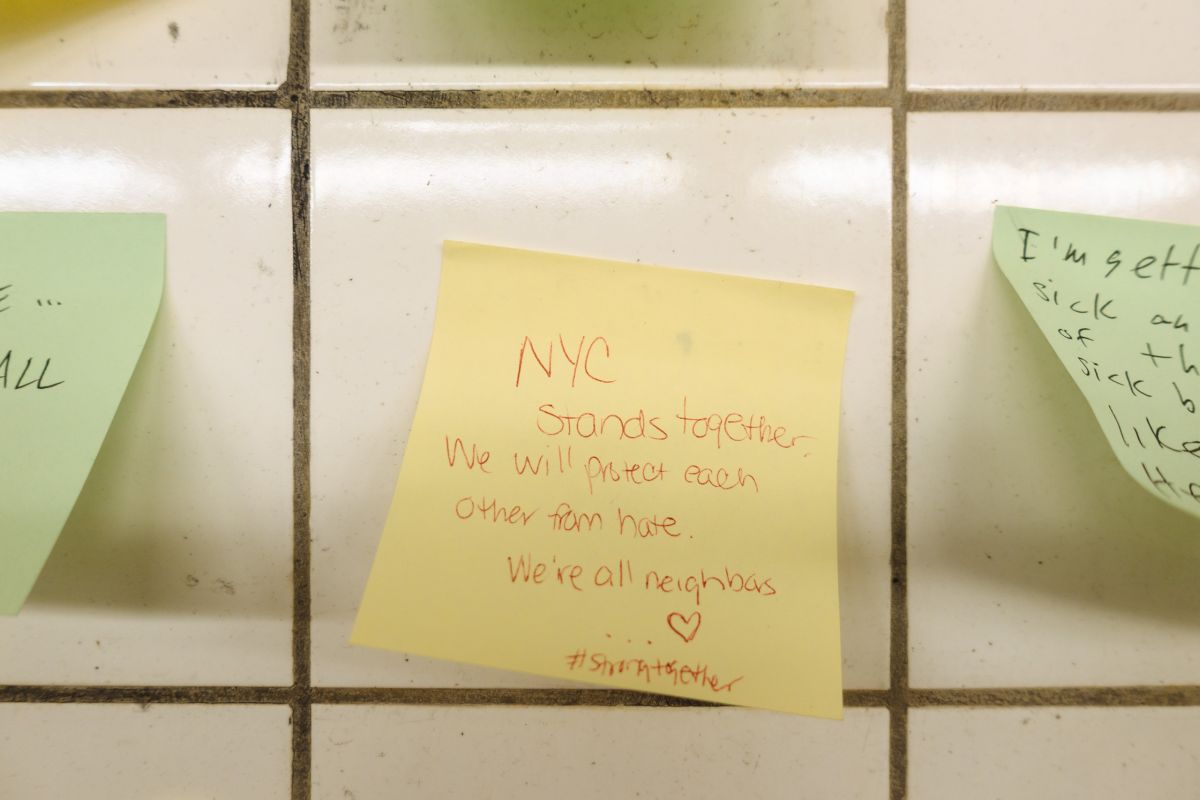 E ...
ALL
NYC
Stands together.
We will protect each
other from hate.
We're all neighbors
... ♡
#strongtogether
I'm gett
sick an
of th
sick b
like